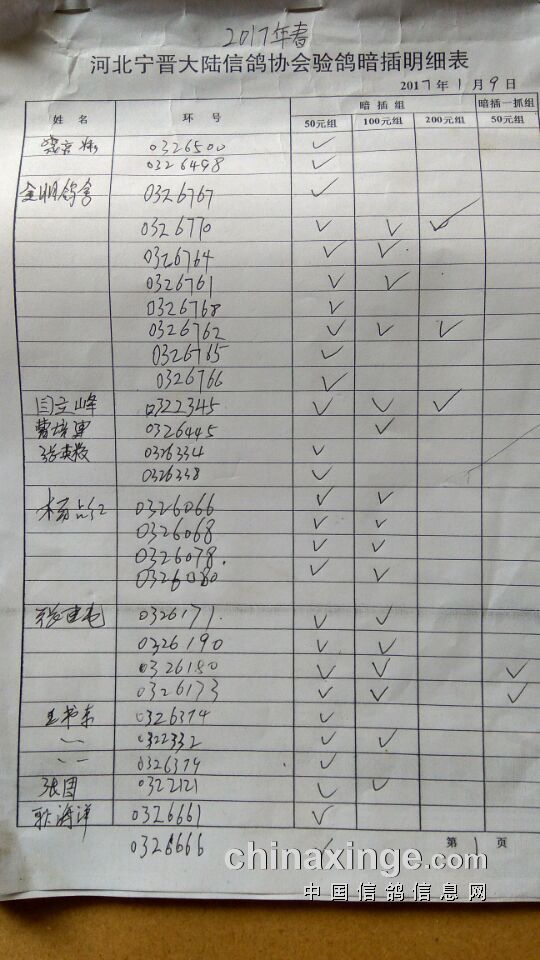 2017年春
河北宁晋大陆信鸽协会验鸽暗插明细表
2017年1月9日
姓名 环号 暗插组 暗插一抓组
50元组 100元组 200元组 50元组
0326500 ✓
0326498 ✓
金明鸽舍 0326767 ✓
0326770 ✓ ✓ ✓
0326764 ✓ ✓
0326761 ✓ ✓
0326768 ✓
0326762 ✓ ✓ ✓
0326765 ✓
0326766 ✓
闫立峰 0322345 ✓ ✓ ✓
曹培更 0326445 ✓
张英敏 0326334 ✓
0326338 ✓
杨占红 0326066 ✓ ✓
0326068 ✓ ✓
0326078. ✓ ✓
0326080 ✓ ✓
张更毛 0326171. ✓ ✓
0326190 ✓ ✓
0326180 ✓ ✓ ✓
0326173 ✓ ✓ ✓
王书东 0326374 ✓
〃 0322332 ✓ ✓
〃 0326379 ✓
张国 0322121 ✓ ✓
耿海洋 0326661 ✓
0326666 ✓
第1页
chinaxinge.com
中国信鸽信息网